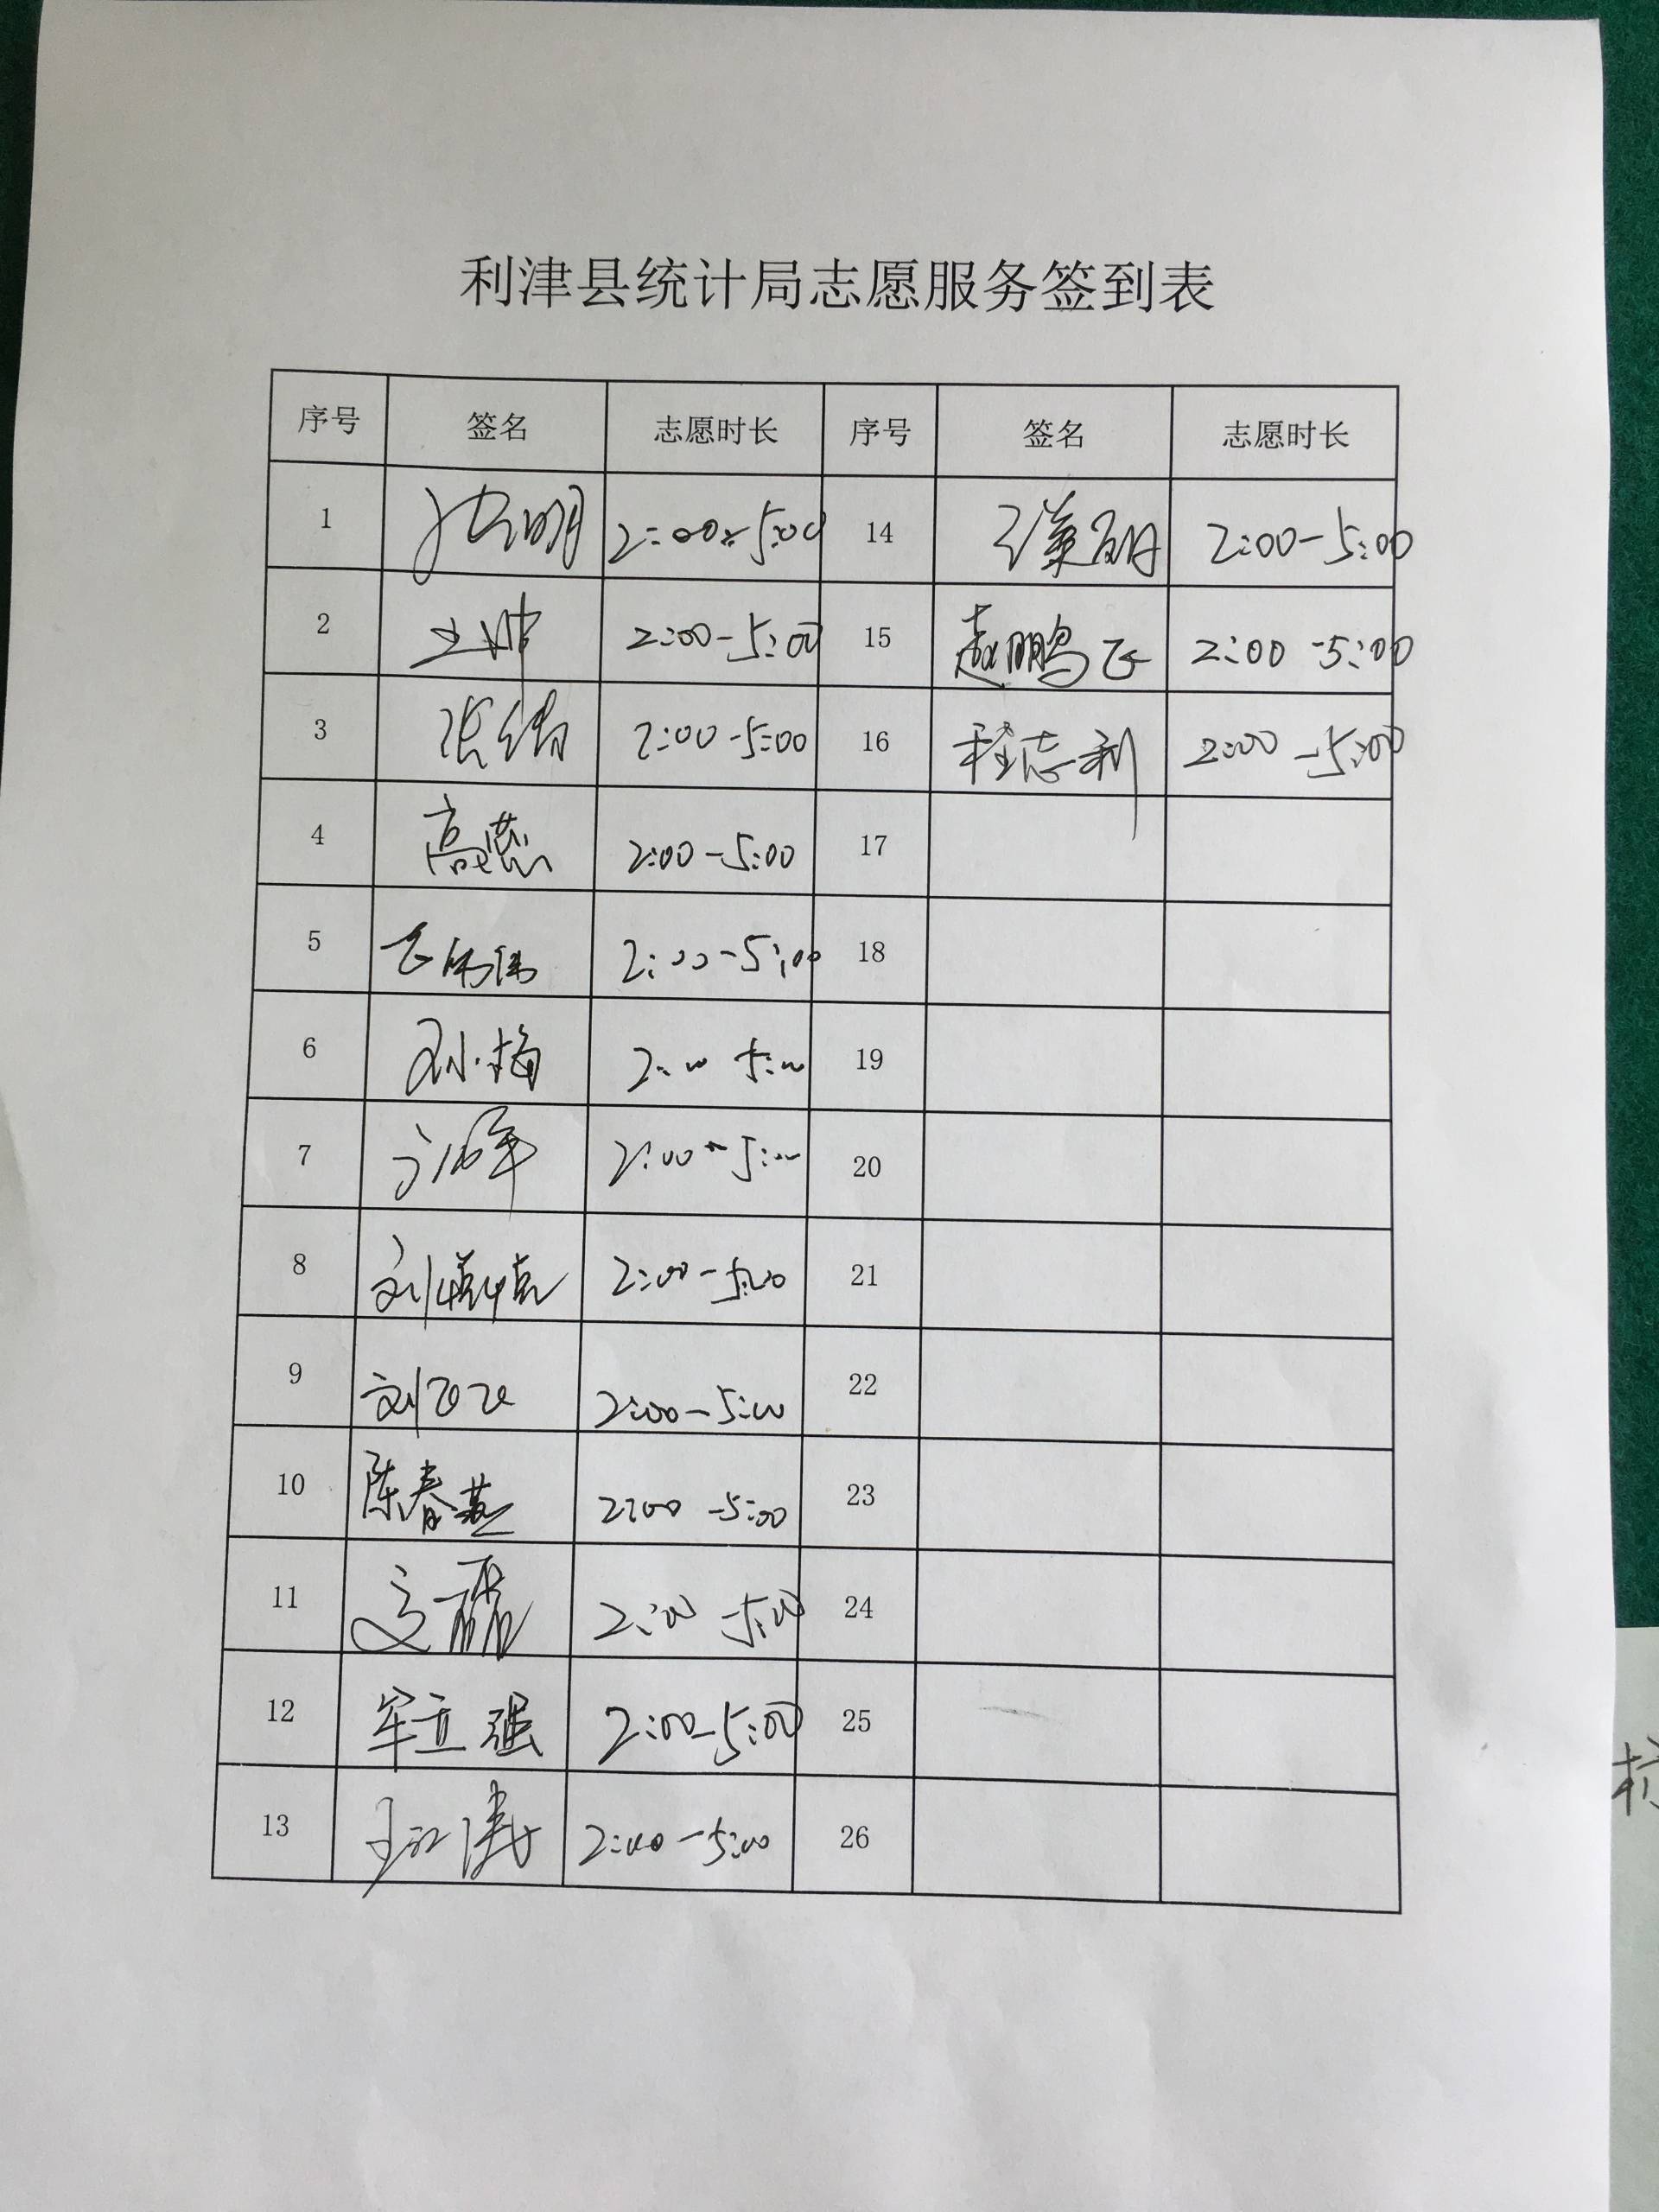 利津县统计局志愿服务签到表
序号 签名 志愿时长 序号 签名 志愿时长
1 2:00-5:00 14 2:00-5:00
2 2:00-5:00 15 赵鹏飞 2:00-5:00
3 2:00-5:00 16 程志利 2:00-5:00
4 高蕊 2:00-5:00 17
5 2:00-5:00 18
6 孙小梅 2:00 5:00 19
7 2:00-5:00 20
8 2:00-5:00 21
9 刘飞飞 2:00-5:00 22
10 陈春燕 2:00-5:00 23
11 2:00-5:00 24
12 军立强 2:00-5:00 25
13 2:00-5:00 26